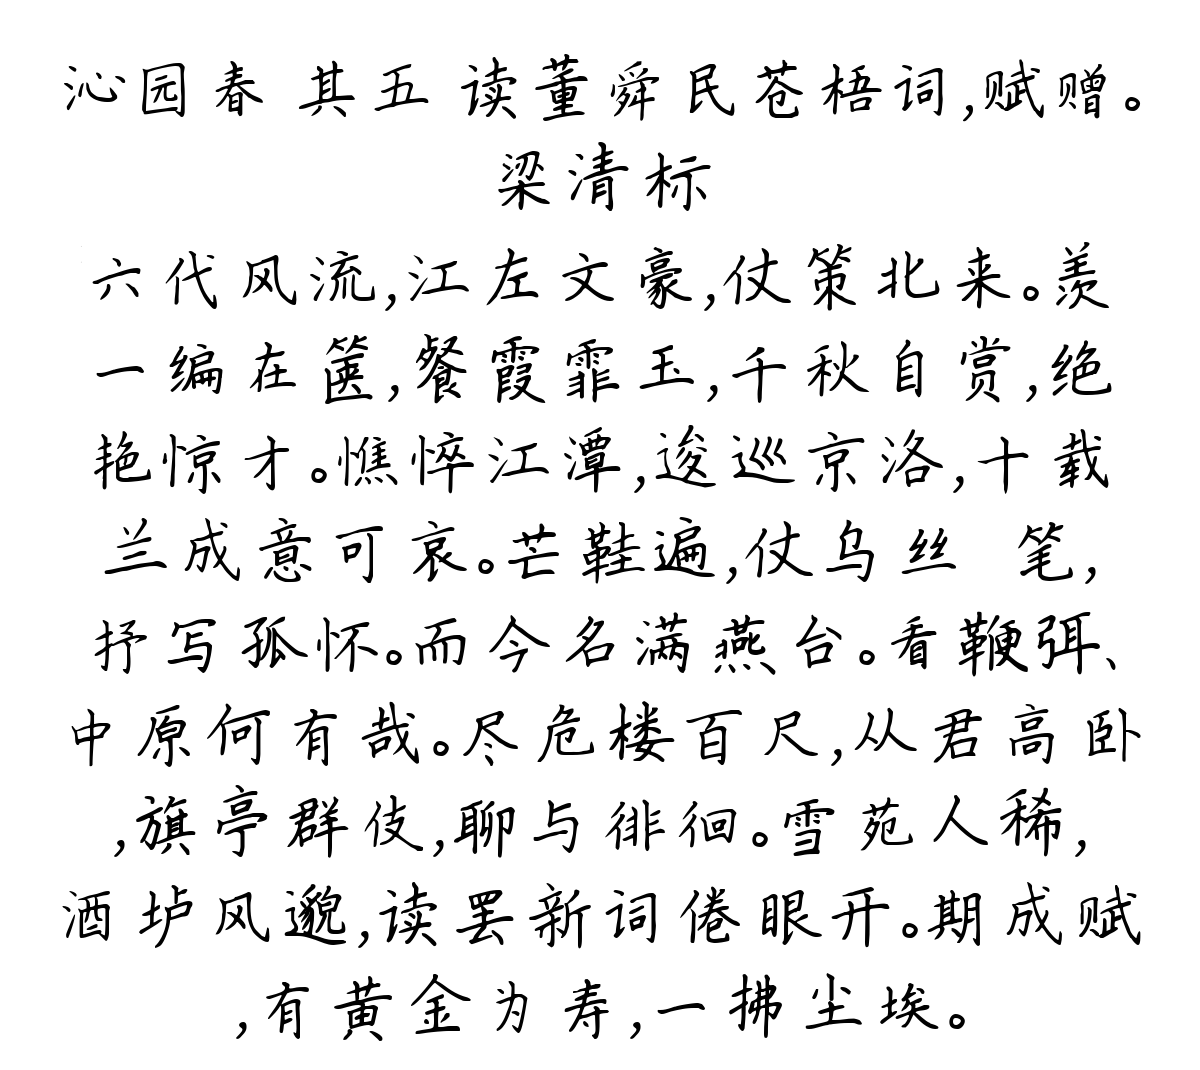 沁园春 其五 读董舜民苍梧词,赋赠。
梁清标
六代风流,江左文豪,仗策北来。羡
一编在箧,餐霞霏玉,千秋自赏,绝
艳惊才。憔悴江潭,逡巡京洛,十载
兰成意可哀。芒鞋遍,仗乌丝 笔,
抒写孤怀。而今名满燕台。看鞭弭、
中原何有哉。尽危楼百尺,从君高卧
,旗亭群伎,聊与徘徊。雪苑人稀,
酒垆风邈,读罢新词倦眼开。期成赋
,有黄金为寿,一拂尘埃。